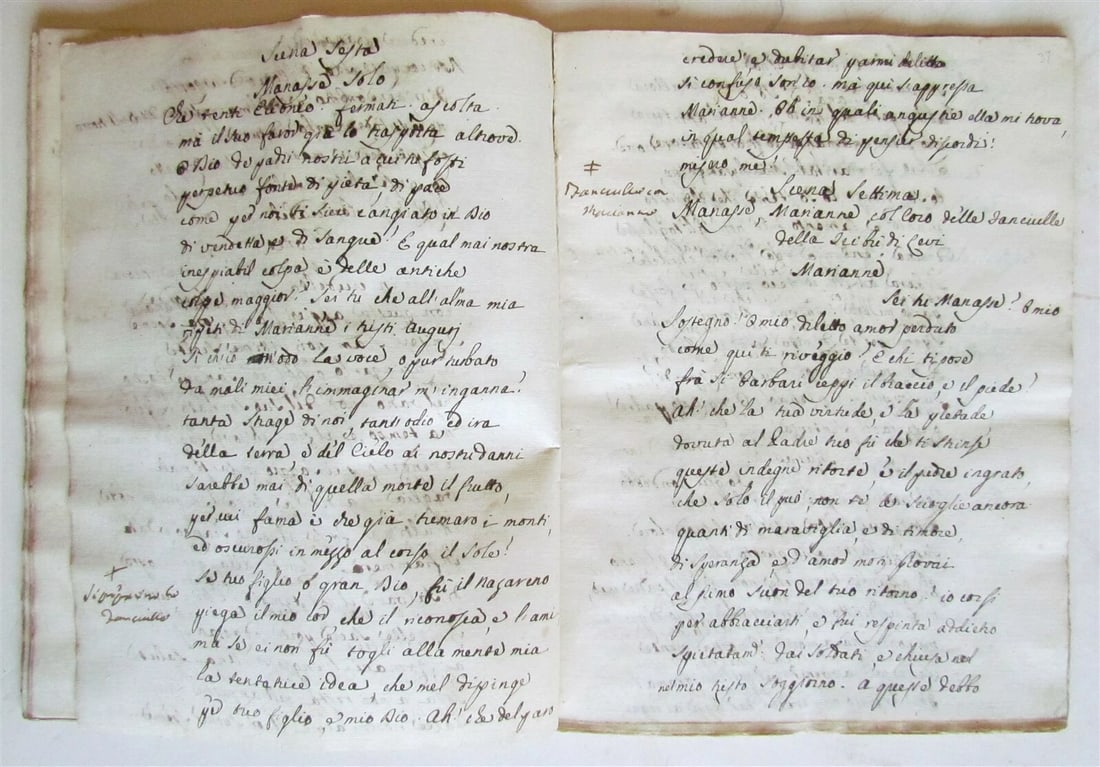 Scena Sesta
Manasse Solo
Che tenti Eleonco. fermati. ascolta.
mà il suo furor già lo trasporta altrove.
O Dio de padri nostri a cui tu fosti
perpetuo fonte di pietà, di pace
come per noi ti sei cangiato in Dio
di vendetta, e di sangue! E qual mai nostra
inespiabil colpa è delle antiche
colpe maggior? Sei tu che all'alma mia
di Marianne i tristi augurj
Si invio m'odo la voce, o pur turbato
da mali miei l'immaginar m'inganna?
tanta strage di noi, tant'odio ed ira
della terra, e del Cielo ai nostri danni
sarebbe mai di quella morte il frutto,
per cui fama è che già tremaro i monti,
ed oscurossi in mezzo al corso il Sole?
Se tuo figlio, o gran Dio, fù il Nazareno
piega il mio cor che il riconosca, e l'ami
ma se ei non fù togli alla mente mia
la tentatrice idea, che mel dipinge
per tuo figlio e mio Dio. Ah! che del paro
+
37
credere, e dubitar parmi delitto
Si confuso son io. mà qui s'appressa
Marianne. Oh in quali angustie ella mi trova,
in qual tempesta di pensier discordi!
misero me!
+
Danciulle con
Marianne
Scena Settima
Manasse, Marianne, col Coro delle Danciulle
della Tribù di Levi
Marianne
Sei tu Manasse? O mio
Sostegno! O mio diletto amor perduto
come qui ti riveggio? E chi ti pose
frà sì barbari ceppi il braccio, e il piede?
Ah! che la tua virtude, e la pietade
dovuta al Padre tuo fù che ti strinse
queste indegne ritorte, e il padre ingrato,
che solo il può, non te le scioglie ancora
quanti di maraviglia e di timore,
di speranza, e d'amor moti provai
al primo suon del tuo ritorno! io corsi
per abbracciarti, e fui respinta addietro
spietatam: dai soldati, e chiusa nel
nel mio tristo soggiorno. a queste debbo